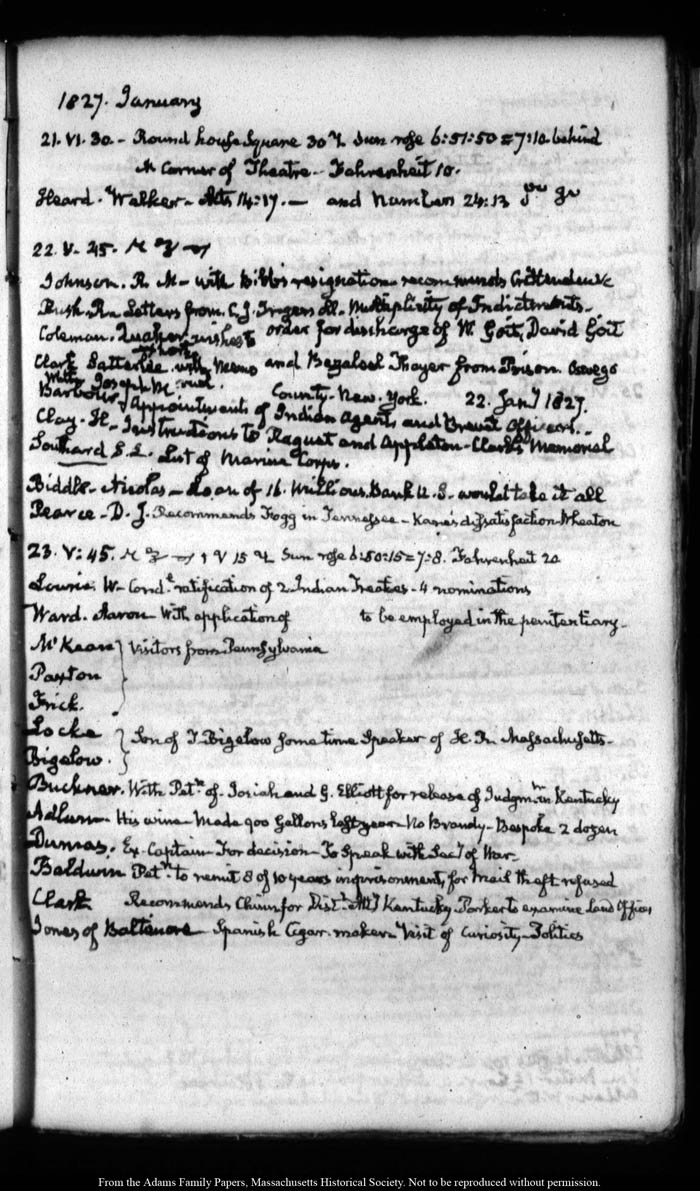 1827. January
21. VI. 30 - Round house Square 30 Sun rose 6:51:50 = 7:10 behind
N Corner of Theatre - Fahrenheit 10.
Heard. Walker - Acts 14:17. - and Numbers 24:13
22. V. 45.
Johnson. R. M - with Bibb's resignation recommends Crittenden &c
Rush. R - Letters from C. J. Ingersoll. Multiplicity of Indictments -
Coleman. Quaker wishes to order for discharge of W. Goit, David Goit
Clark Satterlee. with Memo and Bezaleel Thayer from Prison. Oswego
County - New-York. 22. Jany 1827.
Barbour. Appointments of Indian Agents and Brevet Officers. -
Clay. H - Instructions to Raguet and Appleton - Clark's Memorial
Southard S. L. List of Marine Corps.
Biddle - Nicolas - Loan of 16. Millions. Bank U. S. would take it all
Pearce - D. J. Recommends Fogg in Tennessee - Kane's dissatisfaction. Wheaton
23. V: 45. Sun rose 6:50:15 = 7:8. Fahrenheit 20
Lowrie. W - Condl ratification of 2 Indian Treaties - 4 nominations
Ward. Aaron With application of to be employed in the penitentiary -
McKean } Visitors from Pennsylvania
Paxton
Frick.
Locke
Bigelow. } Son of T. Bigelow sometime Speaker of H. R. Massachusetts -
Buckner. With Petn of Josiah and G. Elliott for release of Judgmt in Kentucky
Adlum - His wine - Made 400 Gallons last year - No Brandy - Bespoke 2 dozen
Dumas. Ex-Captain For decision - To Speak with Secy of War -
Baldwin Petn to remit 8 of 10 years imprisonment, for Mail theft refused
Clark Recommends Chinn for Distt Atty Kentucky. Parker to examine Land Offices
Jones of Baltimore - Spanish Cigar-maker - Visit of Curiosity - Politics
From the Adams Family Papers, Massachusetts Historical Society. Not to be reproduced without permission.